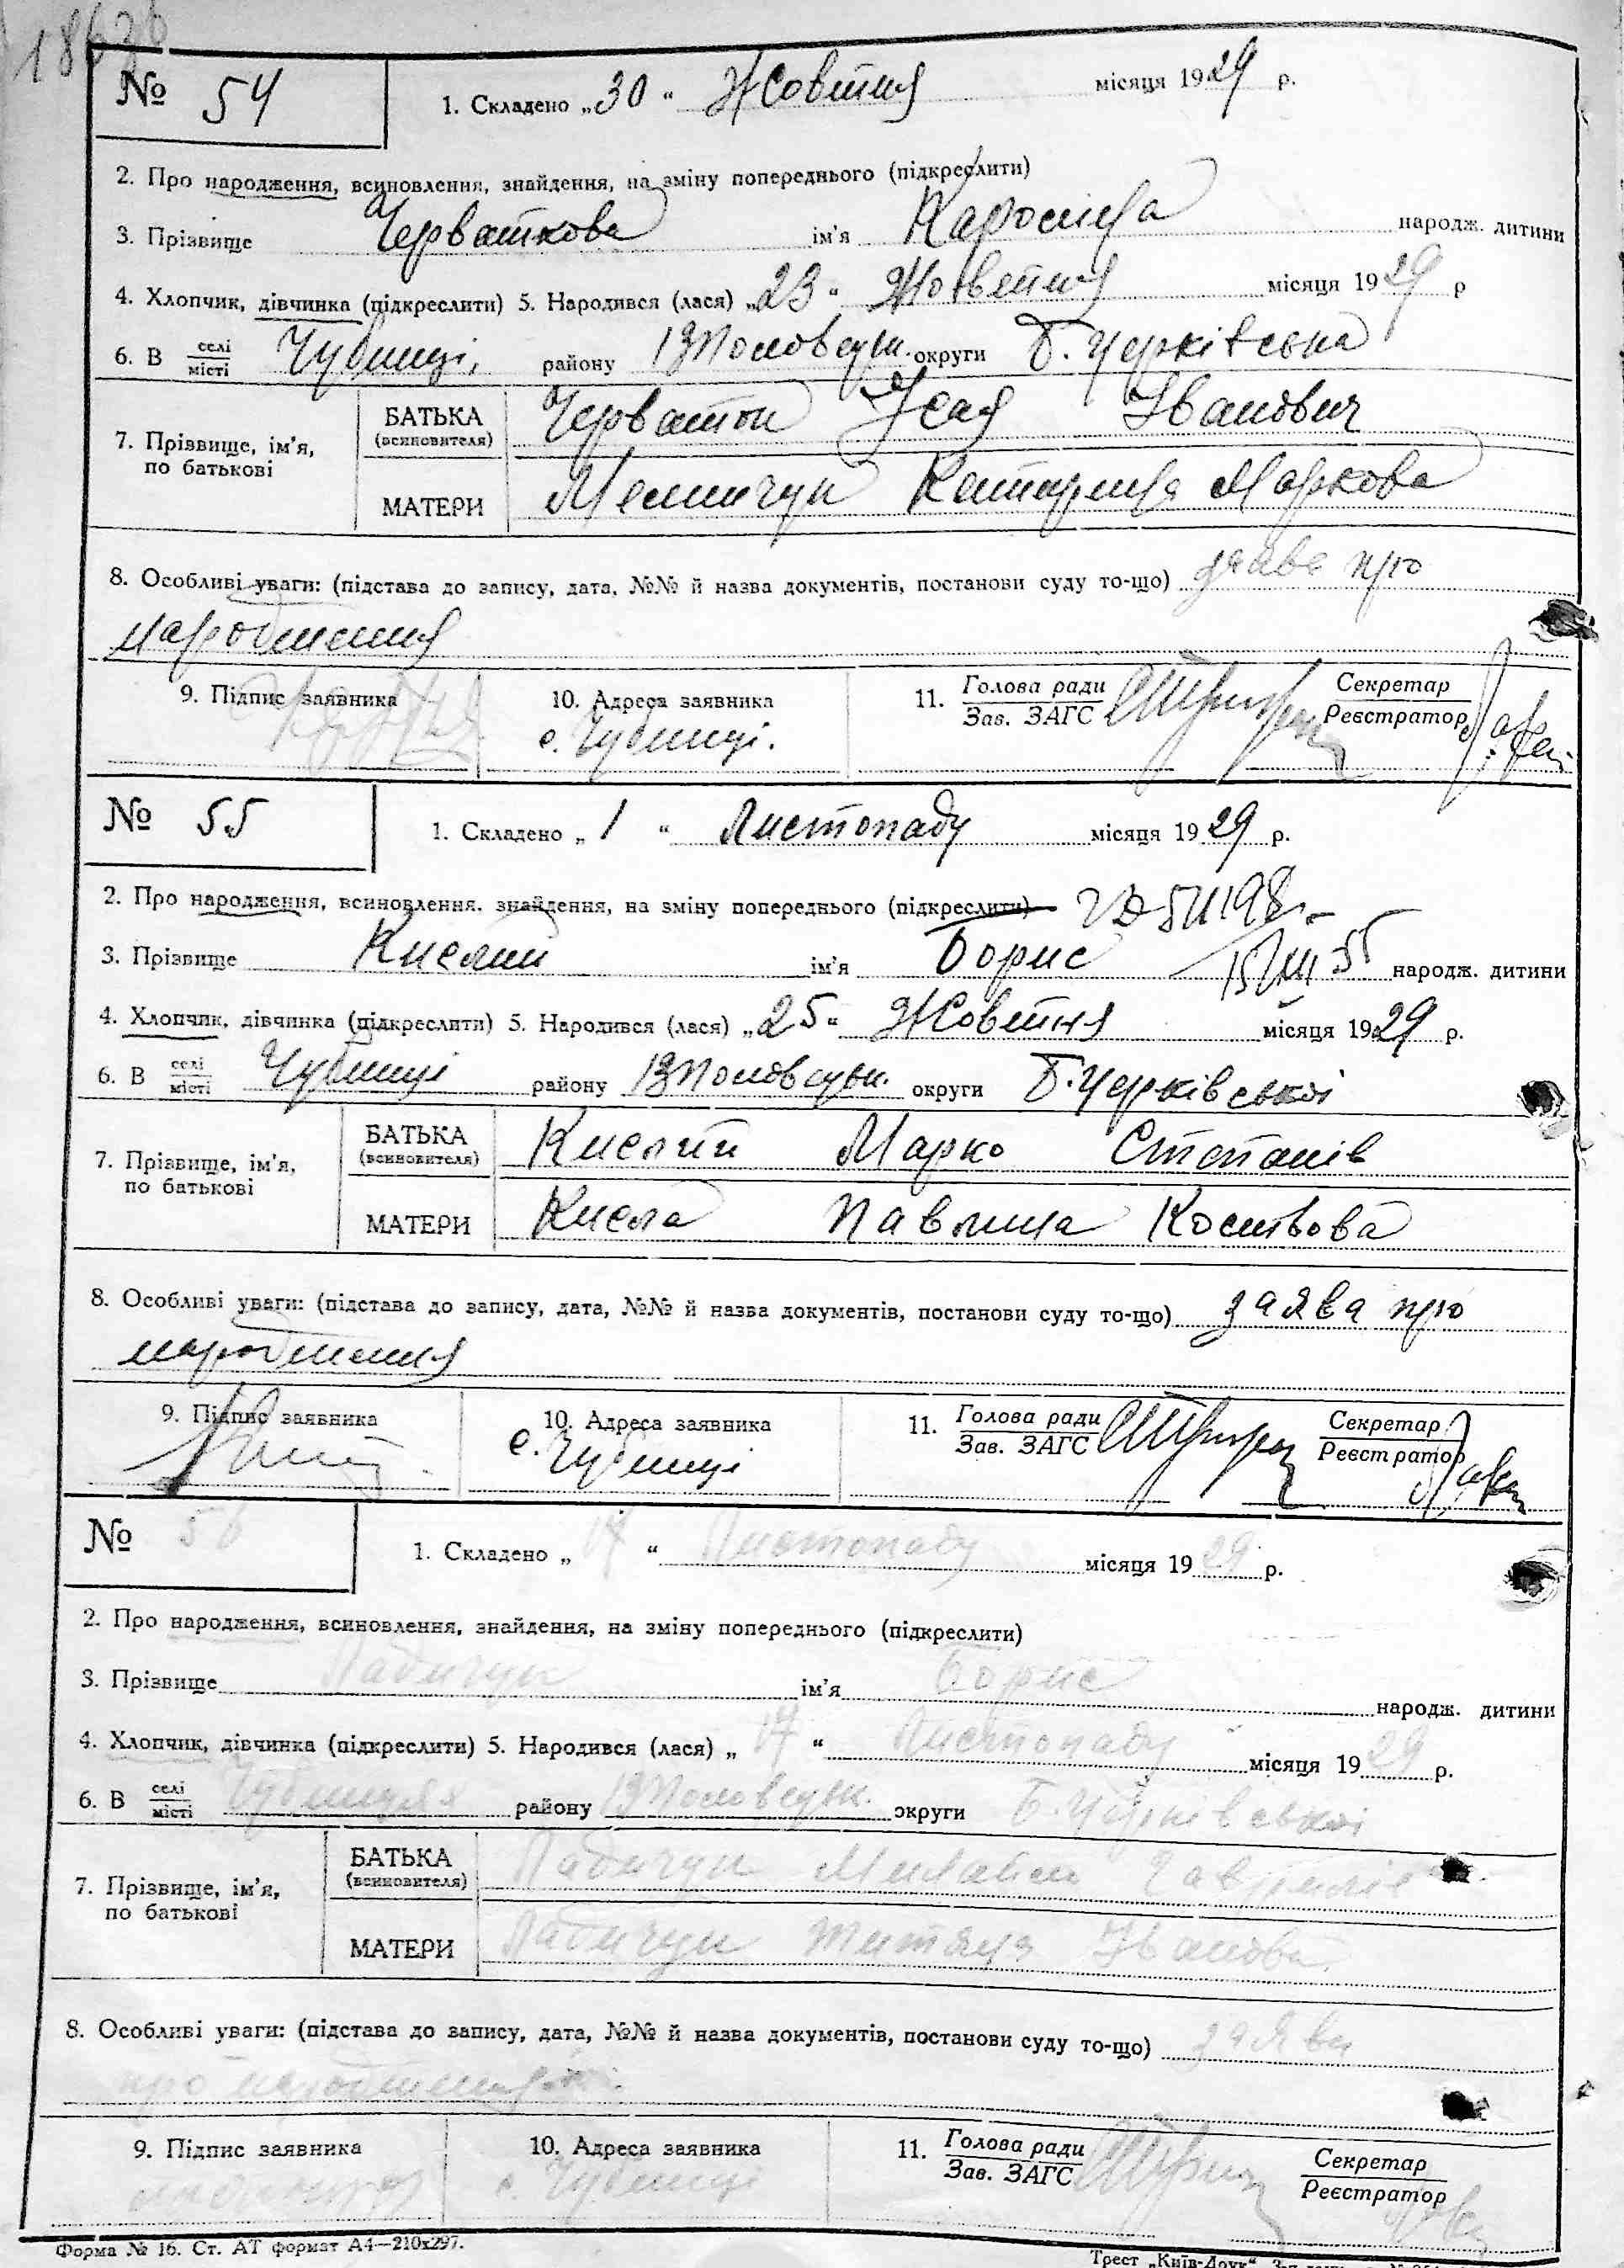 № 54
1. Складено „30“ Жовтня місяця 1929 р.
2. Про народження, всиновлення, знайдення, на зміну попереднього (підкреслити)
3. Прізвище Черваткова ім'я народж. дитини
4. Хлопчик, дівчинка (підкреслити) 5. Народився (лася) „23“ Жовтня місяця 1929 р
6. В селі місті Чубинці, району округи Б. Церківська
7. Прізвище, ім'я, по батькові
БАТЬКА (всиновителя) Іванович
МАТЕРИ Катерина Маркова
8. Особливі уваги: (підстава до запису, дата, №№ й назва документів, постанови суду то-що) заява про
народження
9. Підпис заявника
10. Адреса заявника
с. Чубинці.
11. Голова ради Зав. ЗАГС Секретар Реєстратор
№ 55
1. Складено „1“ Листопаду місяця 1929 р.
2. Про народження, всиновлення. знайдення, на зміну попереднього (підкреслити)
3. Прізвище Кислий ім'я Борис народж. дитини
4. Хлопчик, дівчинка (підкреслити) 5. Народився (лася) „25“ Жовтня місяця 1929 р.
6. В селі місті Чубинці району округи Б. Церківської
7. Прізвище, ім'я, по батькові
БАТЬКА (всиновителя) Кислий Марко Степанів
МАТЕРИ Кисла Павлина Костьова
8. Особливі уваги: (підстава до запису, дата, №№ й назва документів, постанови суду то-що) заява про
народження
9. Підпис заявника
10. Адреса заявника
с. Чубинці
11. Голова ради Зав. ЗАГС Секретар Реєстратор
№ 56
1. Складено „17“ Листопаду місяця 1929 р.
2. Про народження, всиновлення, знайдення, на зміну попереднього (підкреслити)
3. Прізвище Ладичук ім'я Борис народж. дитини
4. Хлопчик, дівчинка (підкреслити) 5. Народився (лася) „17“ Листопаду місяця 1929 р.
6. В селі місті Чубинцях району округи Б. Церківської
7. Прізвище, ім'я, по батькові
БАТЬКА (всиновителя) Ладичук
МАТЕРИ Ладичук Іванова
8. Особливі уваги: (підстава до запису, дата, №№ й назва документів, постанови суду то-що) заява
про народження
9. Підпис заявника
10. Адреса заявника
с. Чубинці
11. Голова ради Зав. ЗАГС Секретар Реєстратор
Форма № 16. Ст. АТ формат А4—210х297.
Трест „Київ-Друк“